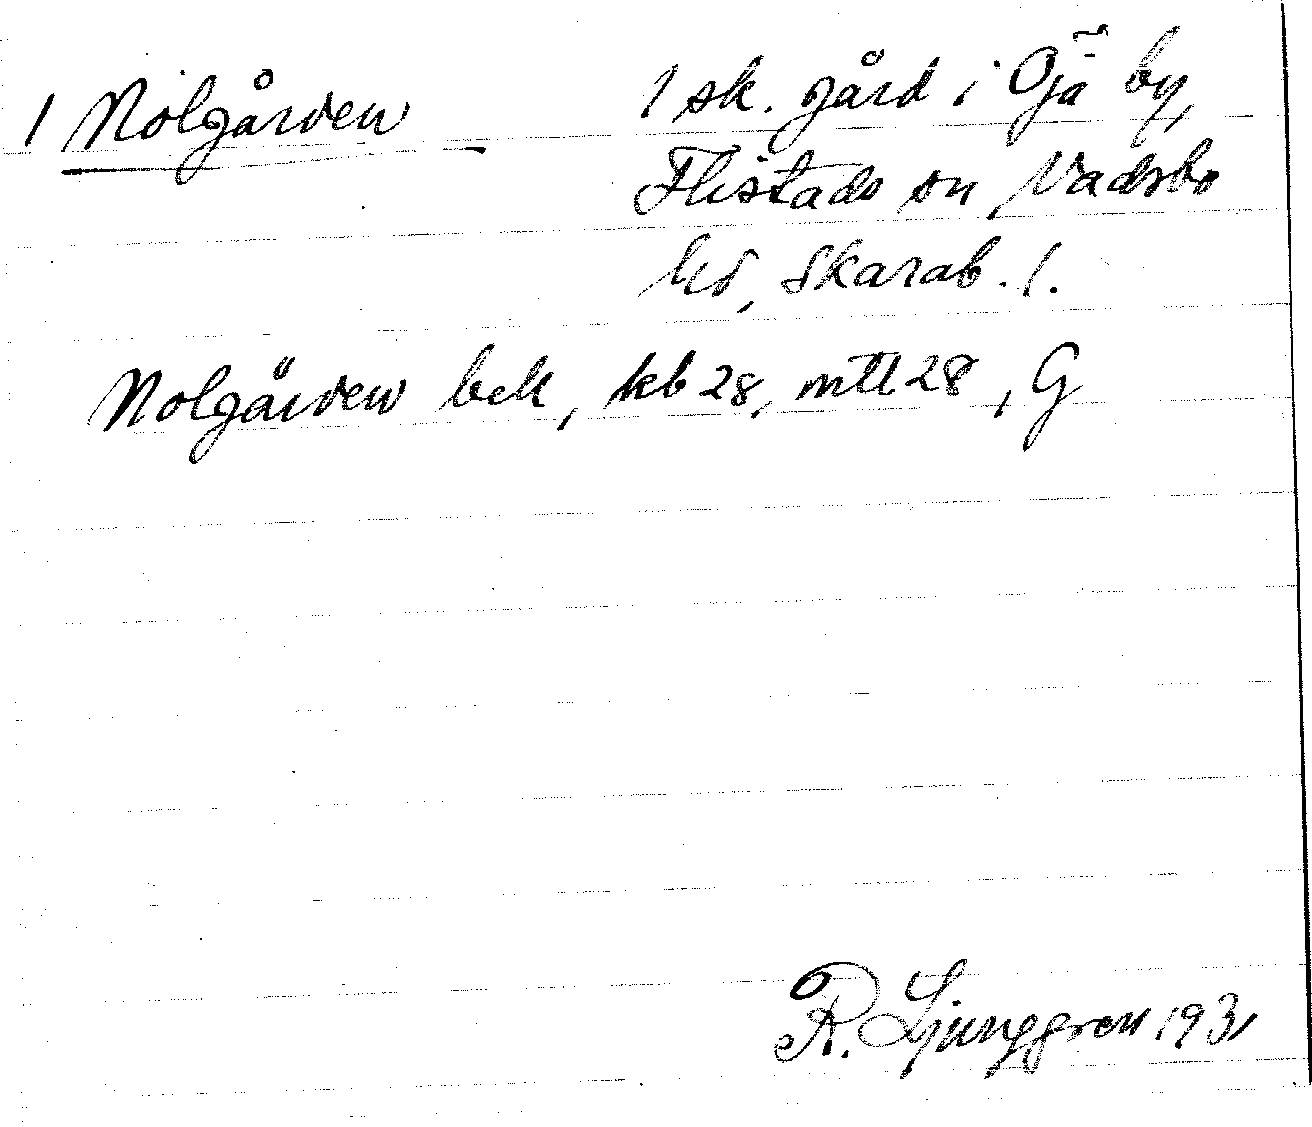 1 Nolgården - 1 sk. gård i Öja by,
Flistads sn, Vadsbo
hd, Skarab. l.
Nolgården bek, kb 28, mtl 28, G
R. Ljunggren 1931